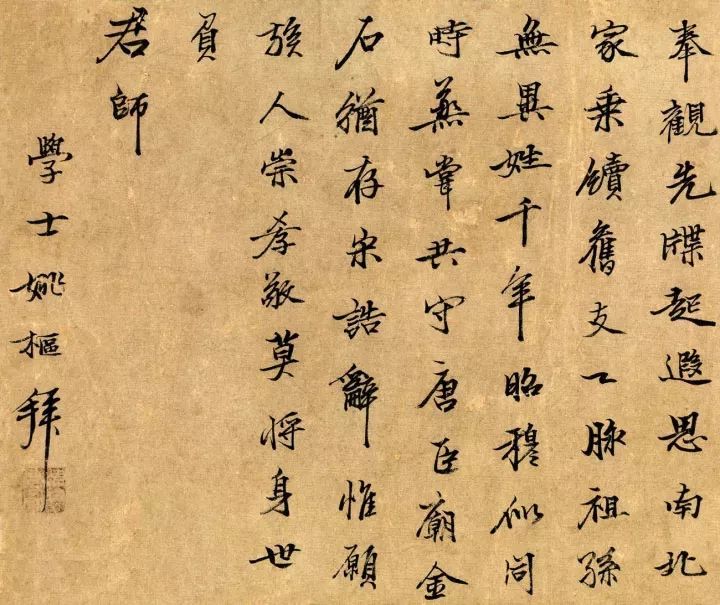 奉觀先牒起遐思南北
家乘續舊支一脉祖孫
無異姓千年昭穆似同
時蒸嘗共守唐臣廟金
石猶存宋誥辭惟願
族人崇孝敬莫將身世
負
君師
學士姚樞拜